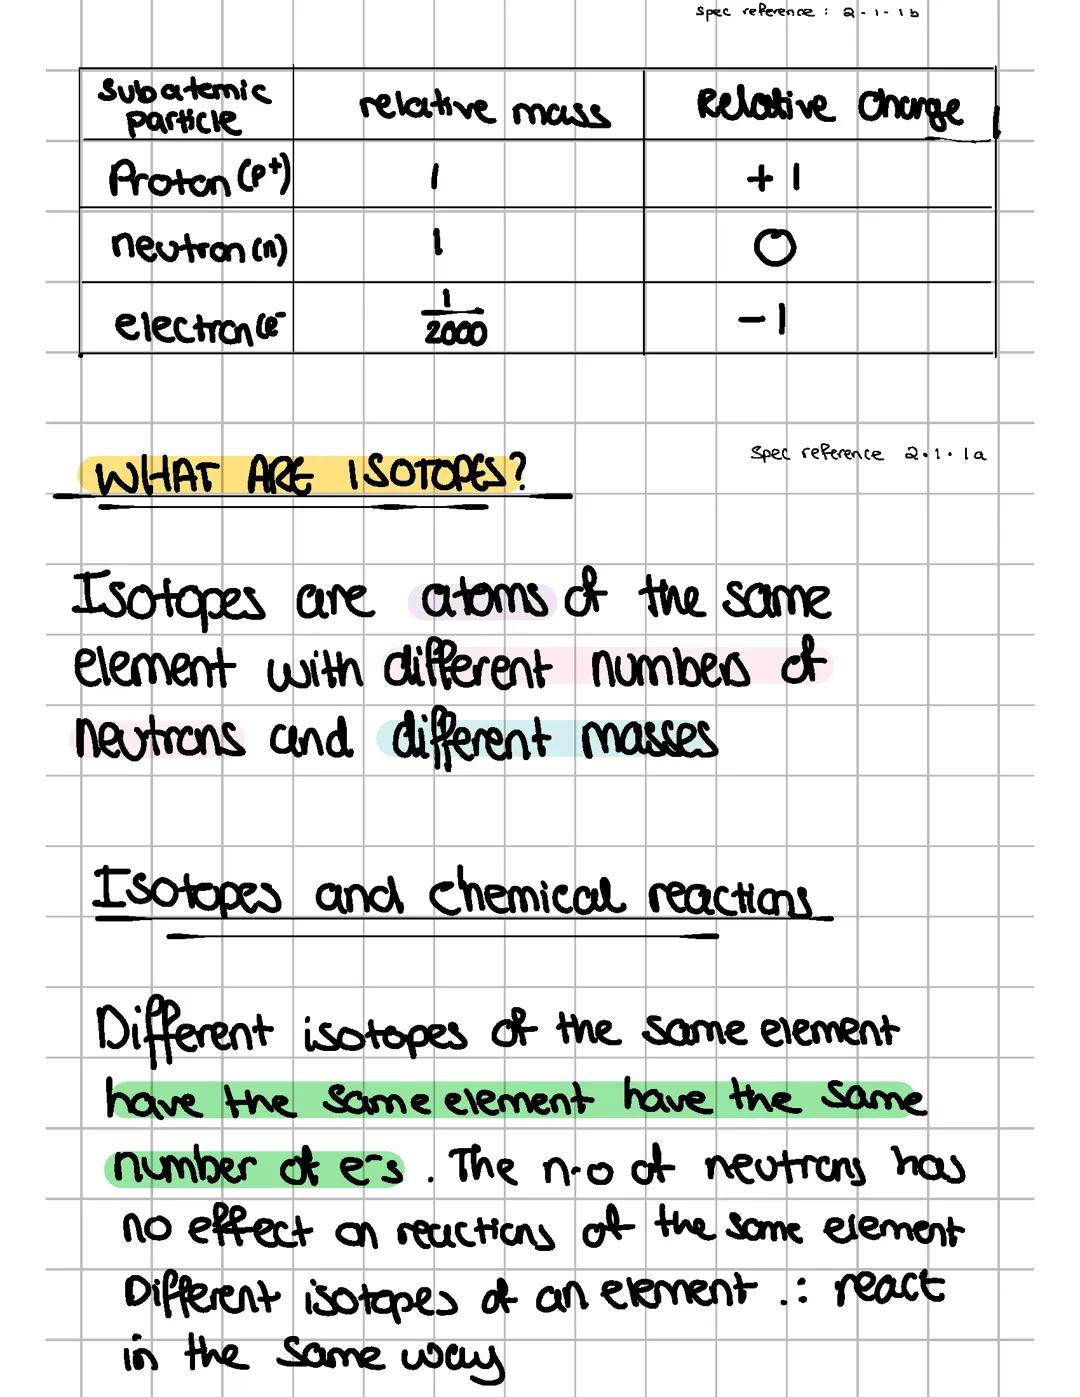 Spec reference : 2-1-1b
Subatomic particle relative mass Relative Charge
Proton (p+) 1 +1
neutron (n) 1 0
electron (e- 1/2000 -1
WHAT ARE ISOTOPES?
Spec reference 2.1.1a
Isotopes are atoms of the same
element with different numbers of
neutrons and different masses
Isotopes and chemical reactions
Different isotopes of the same element
have the same element have the same
number of e-s. The n.o of neutrons has
no effect on reactions of the same element
Different isotopes of an element .: react
in the same way